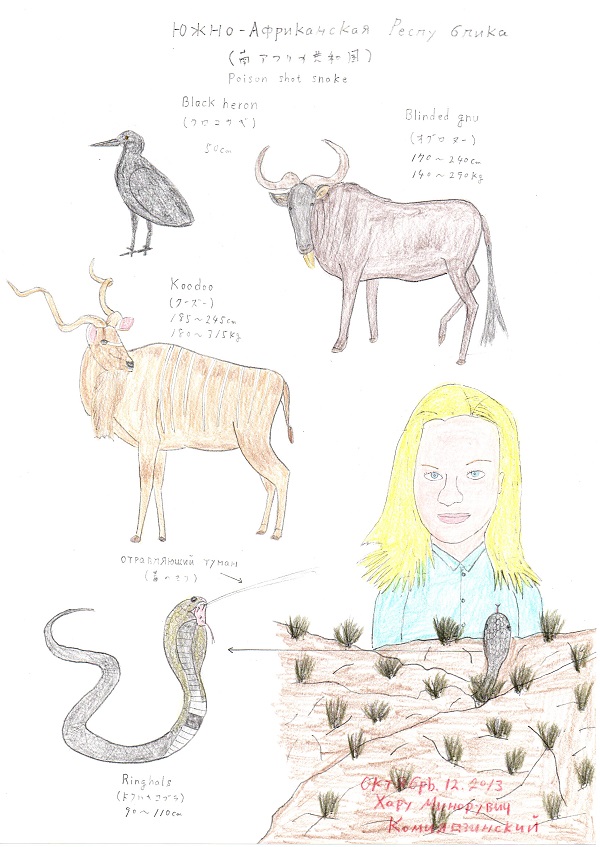 Южно-Африканская Республика
(南アフリカ共和国)
Poison shot snake
Black heron
(クロコサギ)
50cm
Blinded gnu
(オグロヌー)
170~240cm
140~290kg
Koodoo
(クーズー)
185~245cm
180~315kg
отравняющий туман
(毒のきり)
Ringhals
(ドクハキコブラ)
90~110cm
Октябрь. 12. 2013
Хару Минорувич